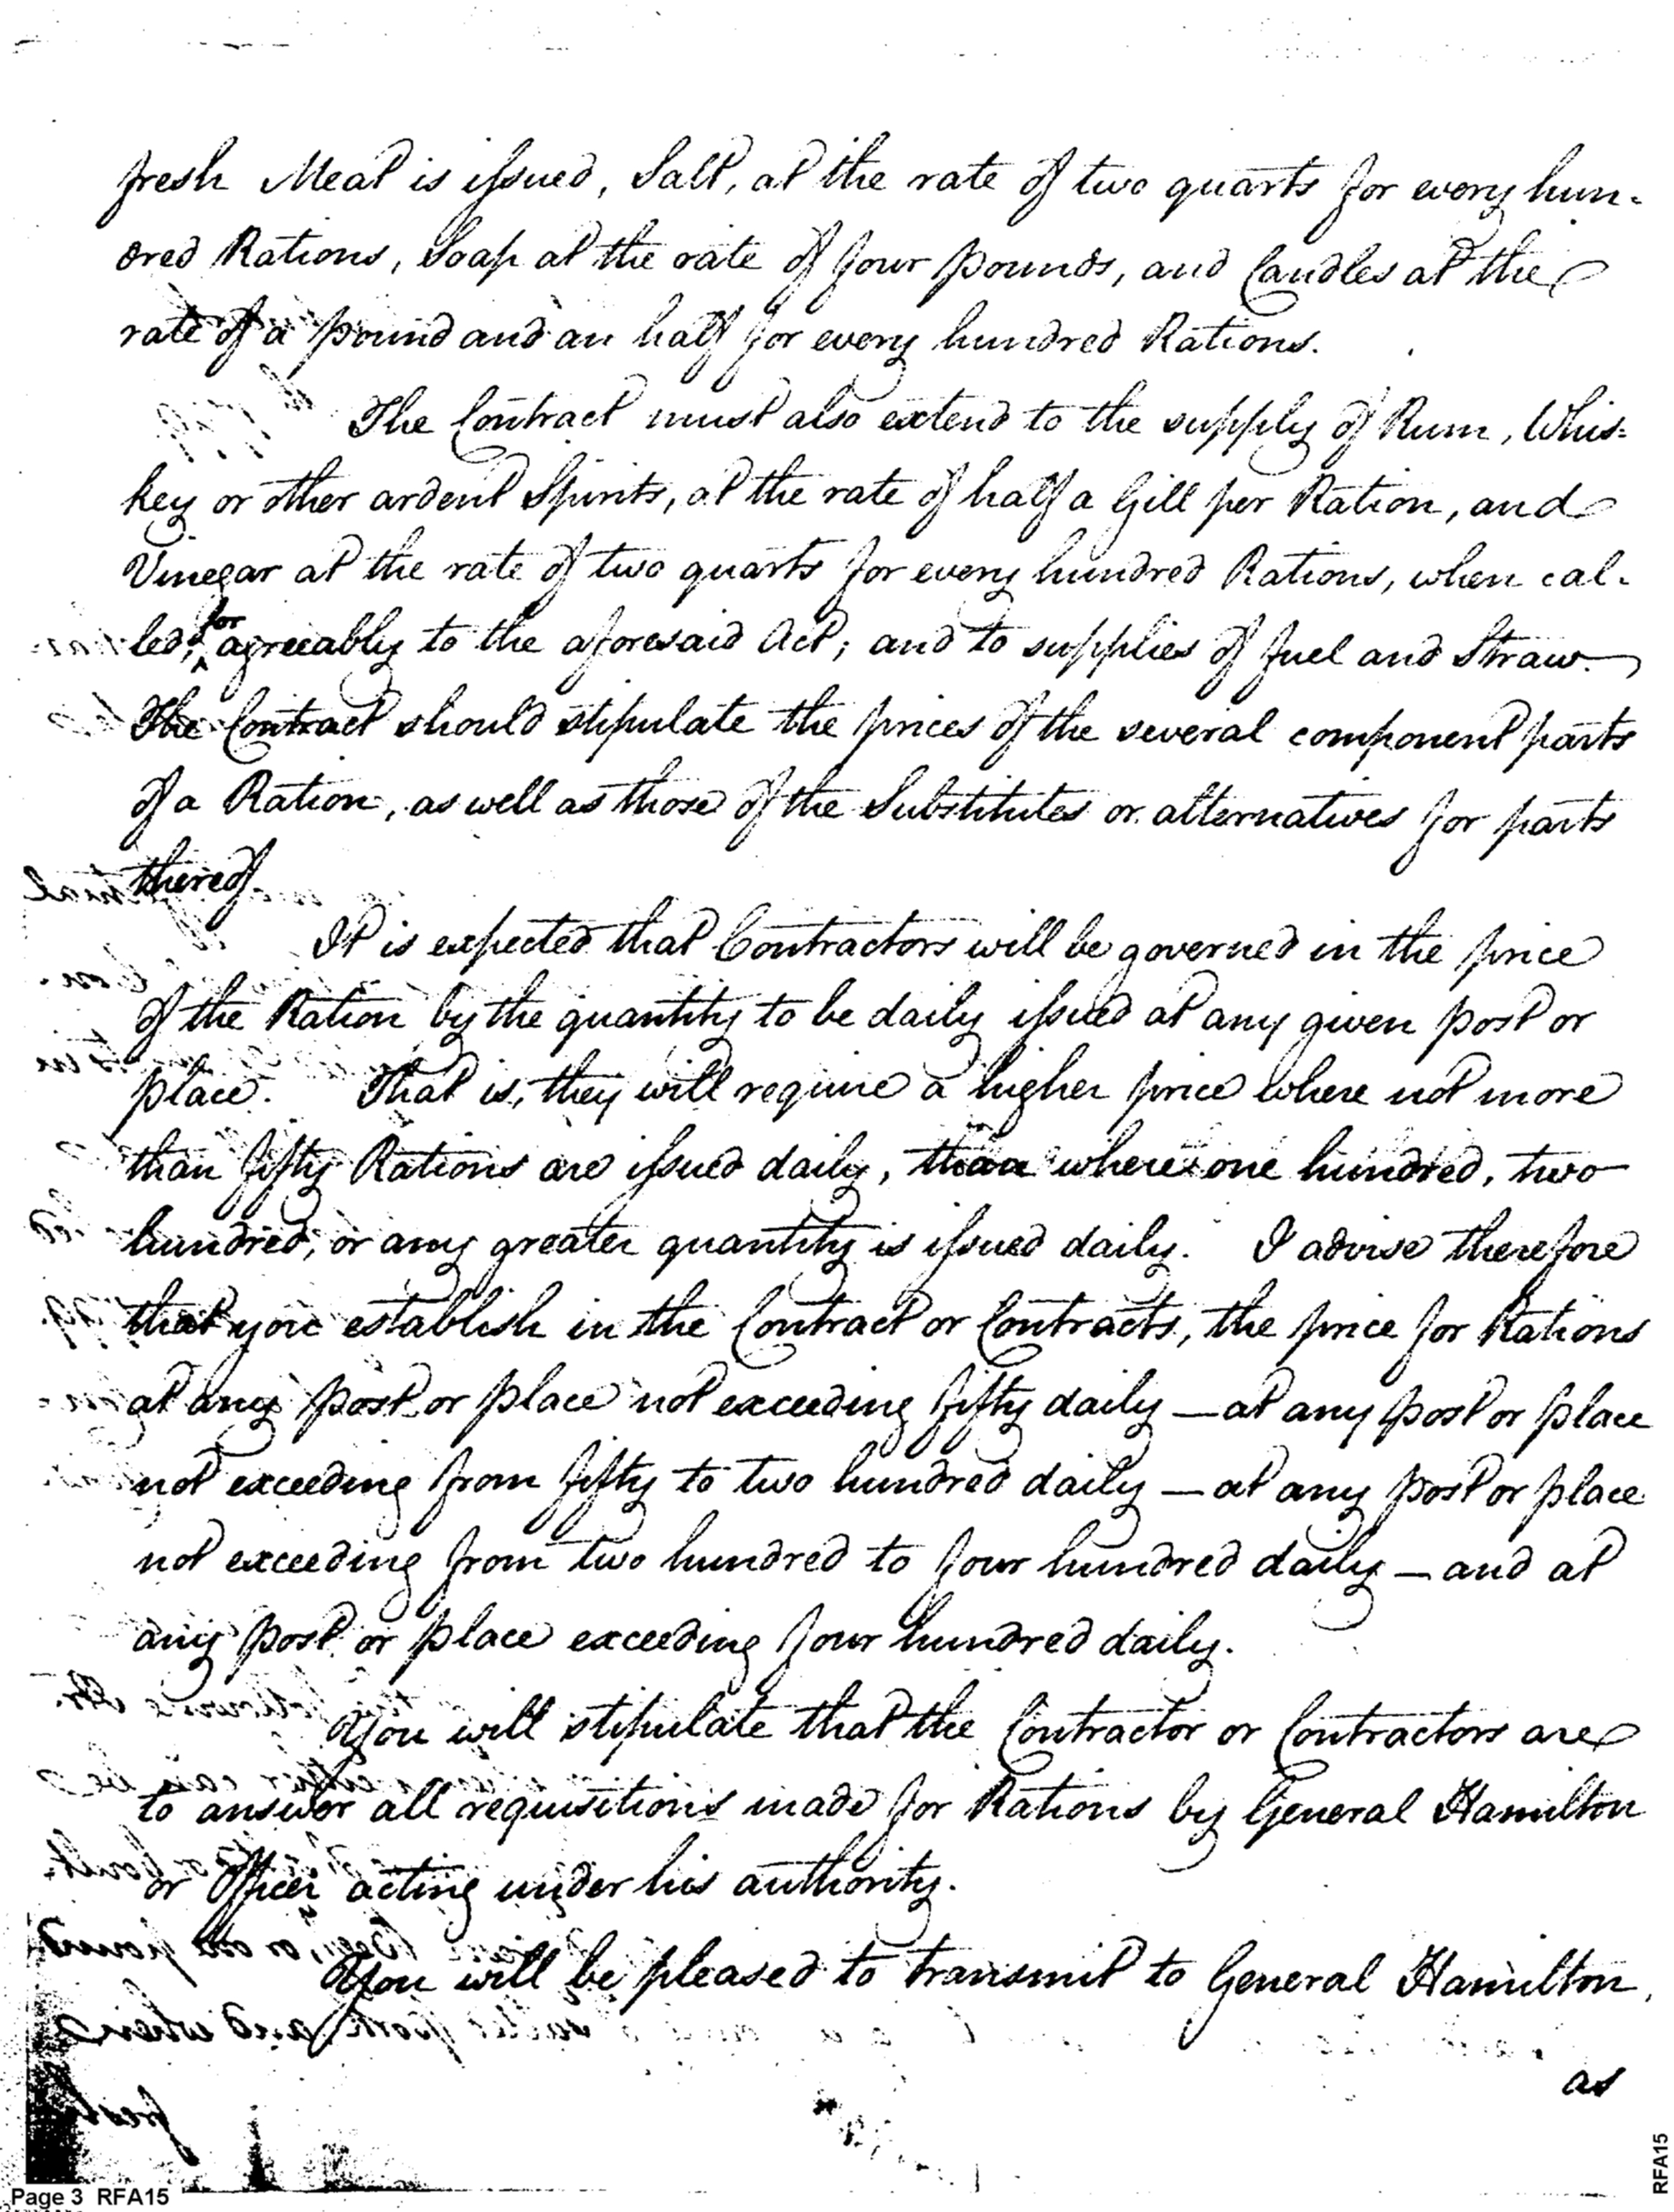 fresh Meat is issued, Salt, at the rate of two quarts for every hun-
dred Rations, Soap at the rate of four pounds, and Candles at the
rate of a pound and an half for every hundred Rations.
The Contract must also extend to the supply of Rum, Whis=
key or other ardent Spirits, at the rate of half a Gill per Ration, and
Vinegar at the rate of two quarts for every hundred Rations, when cal-
led, for agreeably to the aforesaid Act; and to supplies of fuel and Straw.
The Contract should stipulate the prices of the several component parts
of a Ration, as well as those of the Substitutes or alternatives for parts
thereof
It is expected that Contractors will be governed in the price
of the Ration by the quantity to be daily issued at any given post or
place. That is, they will require a higher price where not more
than fifty Rations are issued daily, than where one hundred, two
hundred, or any greater quantity is issued daily. I advise therefore
that you establish in the Contract or Contracts, the price for Rations
at any post or place not exceeding fifty daily — at any post or place
not exceeding from fifty to two hundred daily — at any post or place
not exceeding from two hundred to four hundred daily — and at
any post or place exceeding four hundred daily.
You will stipulate that the Contractor or Contractors are
to answer all requisitions made for Rations by General Hamilton
or Officer acting under his authority.
You will be pleased to transmit to General Hamilton,
as
Page 3 RFA15
RFA15